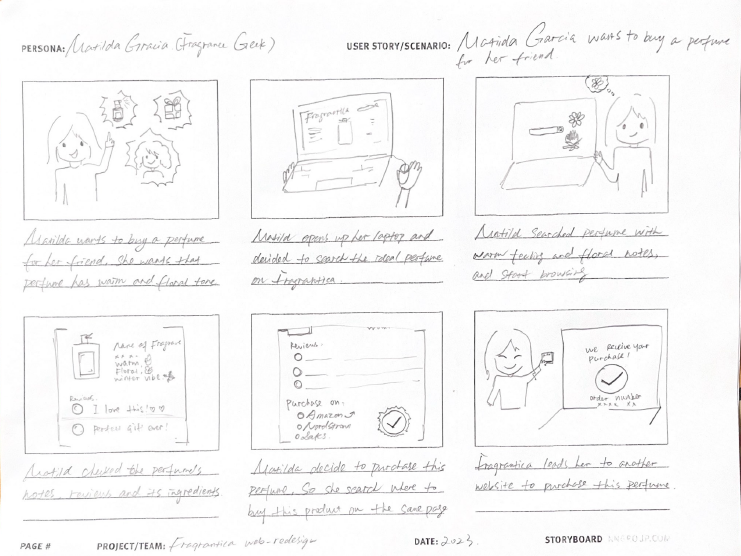 PERSONA: Matilda Gracia (Fragrance Geek)
USER STORY/SCENARIO: Matilda Garcia wants to buy a perfume
for her friend
Fragrantica
Matilda wants to buy a perfume
for her friend. She wants that
perfume has warm and floral tone
Matild opens up her laptop and
decided to search the ideal perfume
on Fragrantica.
Matild searched perfume with
warm feeling and floral notes,
and start browsing
Name of Fragran
warm
floral
winter vibe
Reviews.
I love this!
perfect gift ever!
Reviews.
purchase on.
Amazon
Nordstrom
we receive your
purchase!
order number
xxxx xx
Matild checked the perfume's
notes, reviews and its ingredients
Matilda decide to purchase this
perfume. So she search where to
buy this product on the same page
Fragrantica leads her to another
website to purchase this perfume.
PAGE #
PROJECT/TEAM: Fragrantica web-redesign
DATE: 2023.
STORYBOARD